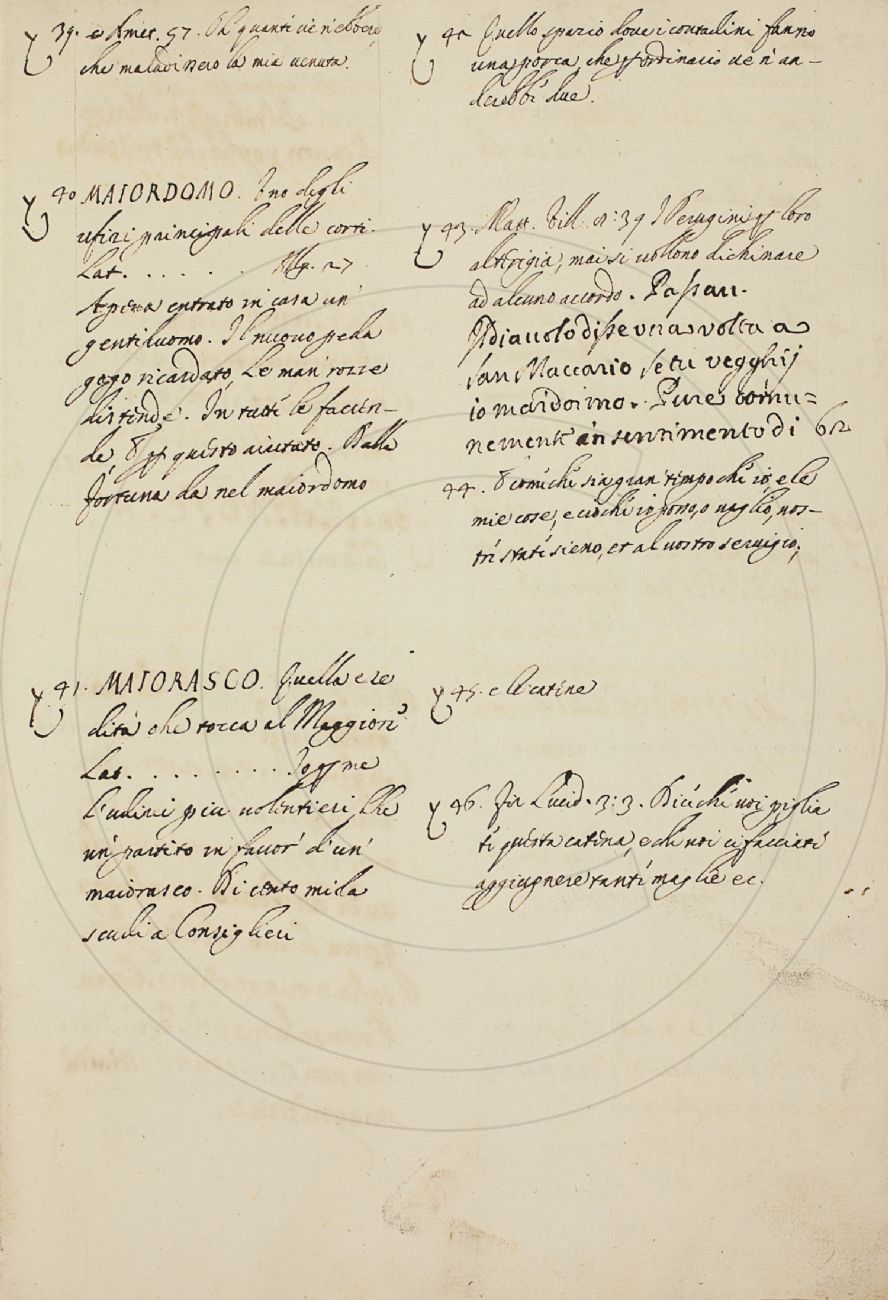 39. e Amet. 57. Oh quanti ve n'ebbero,
che maladissero la mia venuta.
40 MAIORDOMO. Uno degli
ufizi principali delle corti.
Lat. . . . . . . Alleg. 27
Appena entrato in casa un
gentiluomo. Il nuovo peda
gogo ricardato, Le man' rozze
distende. In tutte le faccen-
de, E per questo aiutato. Dalla
fortuna dà nel maiordomo
41. MAIORASCO. Quella ere
dità che tocca al Maggiore
Lat. . . . . . . . .
L'udirei piu volentieri, Che
un' partito in favor' d'un'
maiorasco. Di cento mila
scudi a Consiglieri
42 Quello spazio dove i contadini fanno
una porca, che per ordinario ve n' an-
drebbe due.
43. Matt. Vill. 8: 39 I Perugini per loro
alterigia, mai si vollono dichinare
ad alcuno accordo. Passau.
Il diavolo disse una volta a
San Maccario se tu vegghij
io mai dormo. Pure comu=
nemente in sentimento di 62
44. E come che sia gran tempo che io, e le
mie cose, e ciò che io posso, o vaglio, vos-
tri state sieno, et al vostro servigio,
45. e le catene
46. Fir Lucid. 3: 3. Dice che voi piglia
te questa catena, e che voi ci facciate
aggiugnere tante maglie ec.